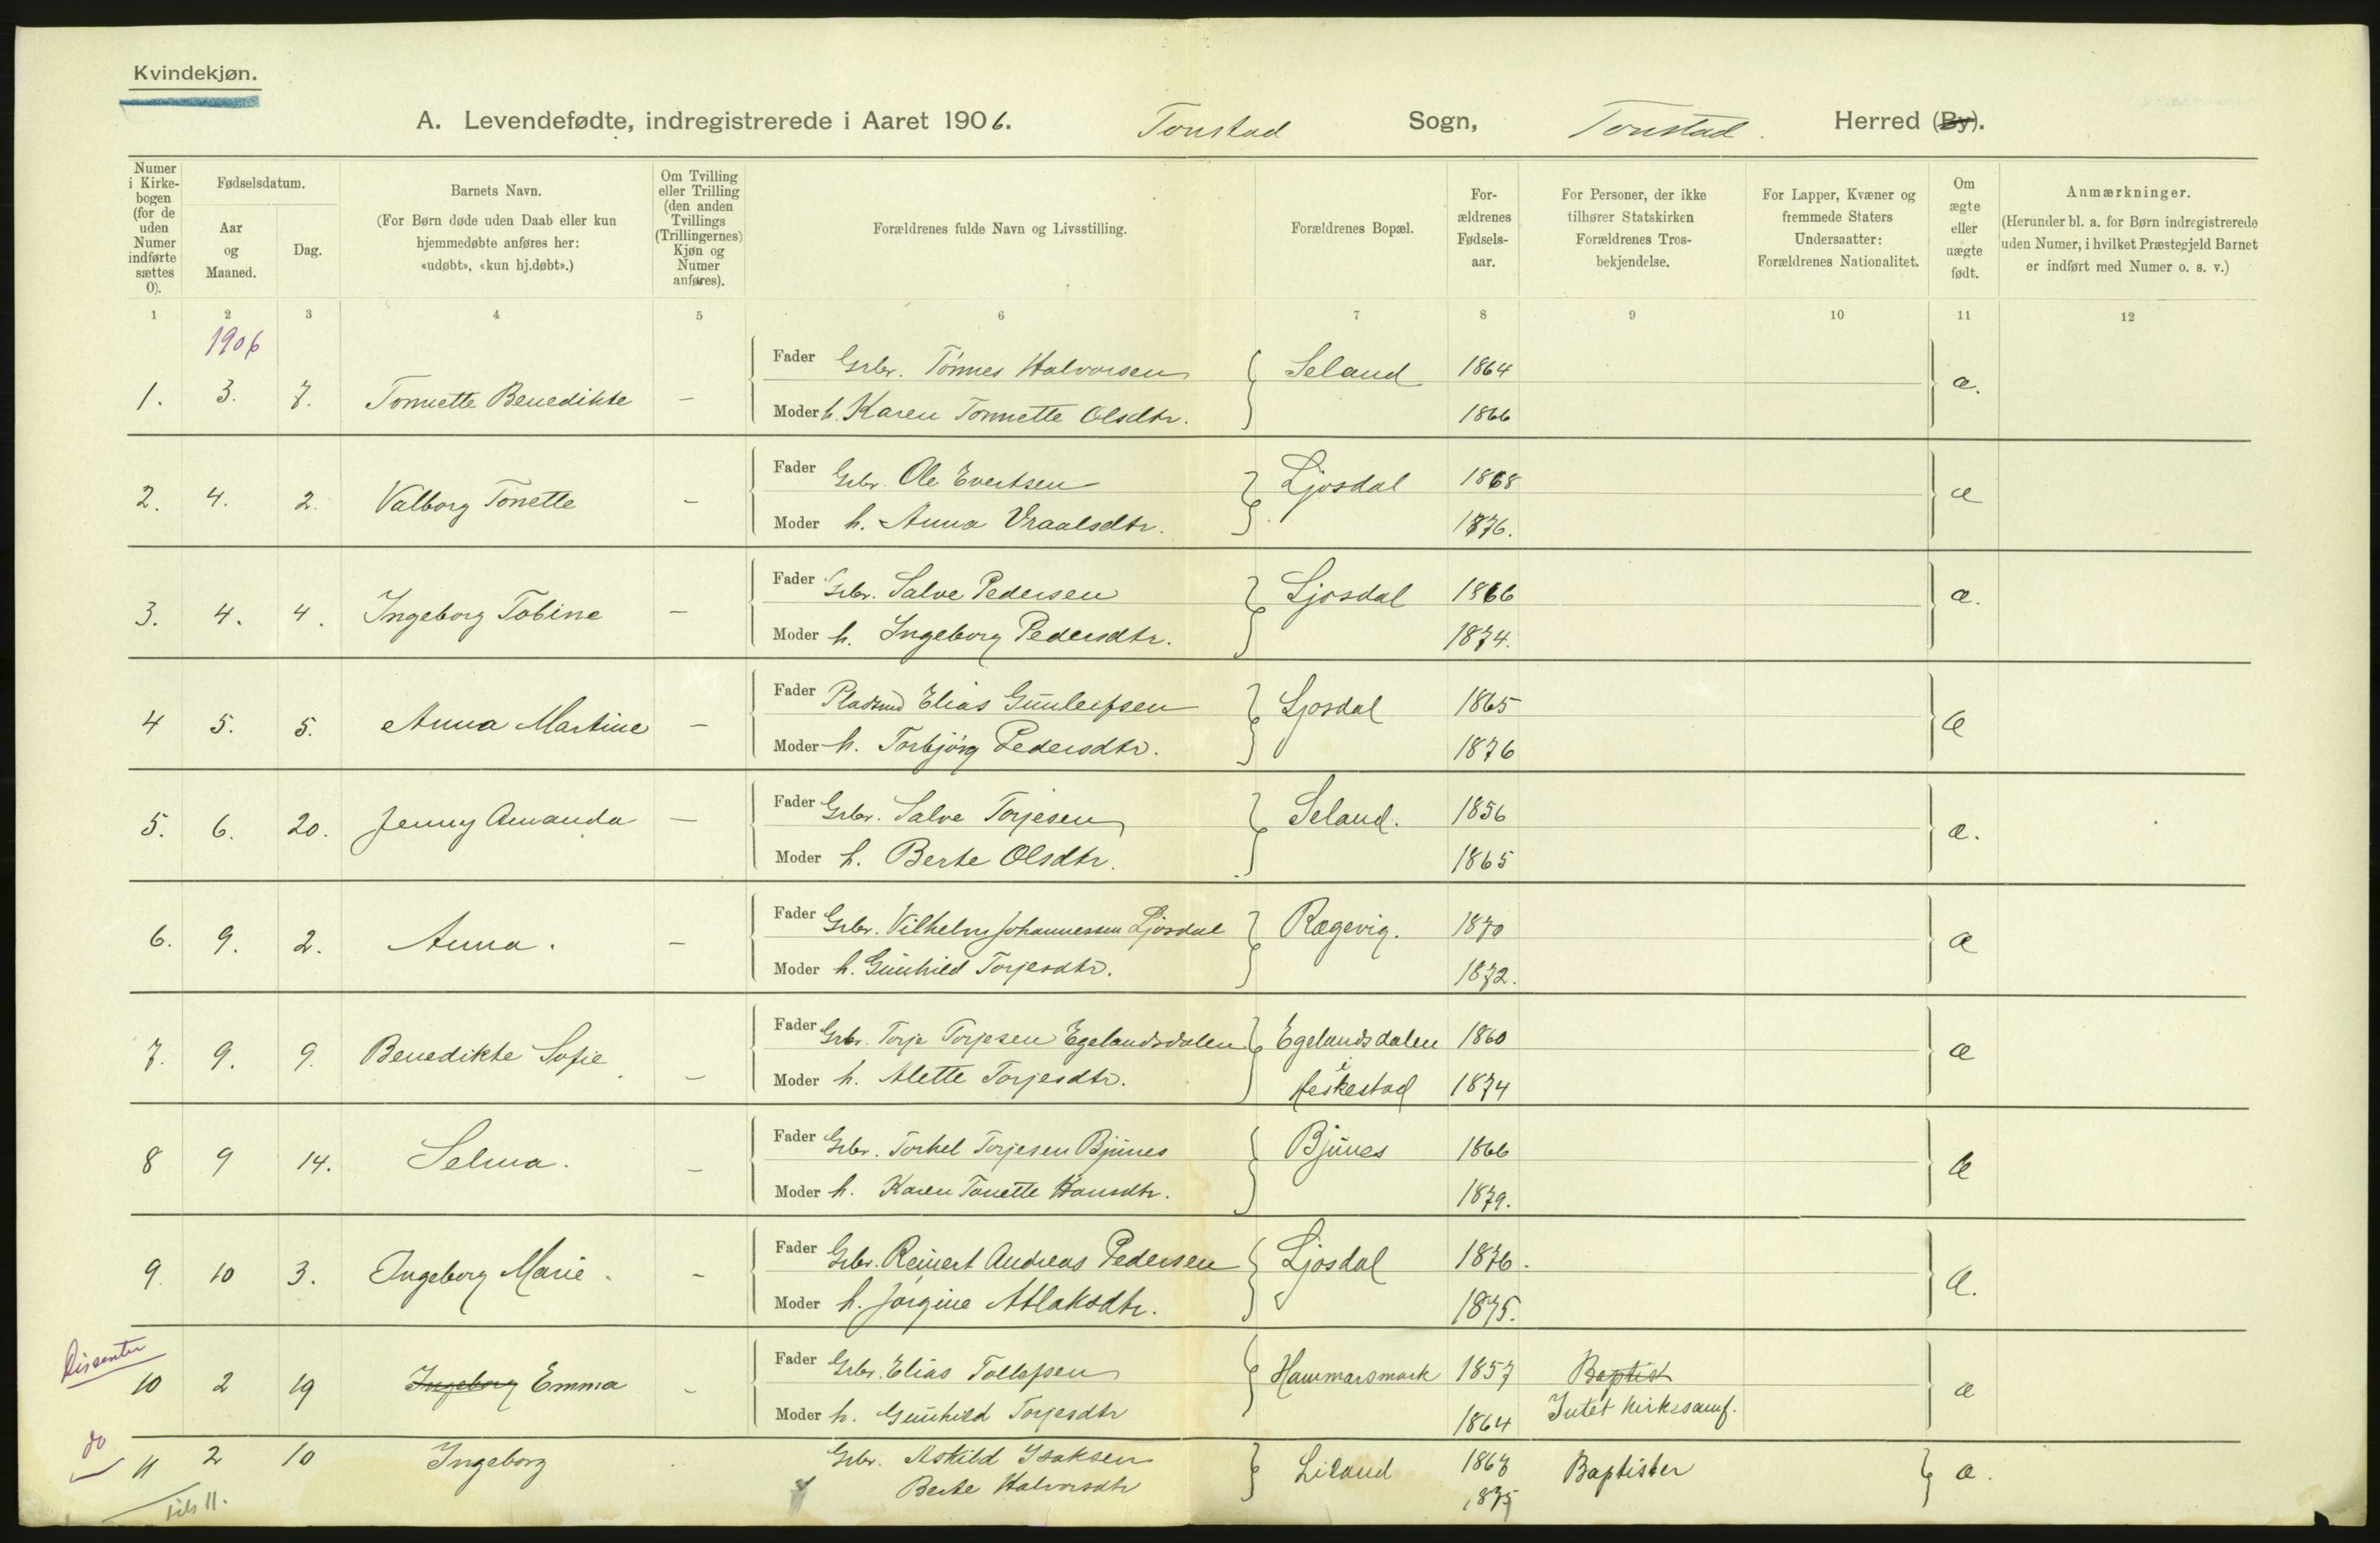 Kvindekjøn.
A. Levendefødte, indregistrerede i Aaret 1906. Tonstad Sogn, Tonstad. Herred (By).
Numer i Kirke-bogen (for de uden Numer indførte sættes 0).
Fødselsdatum.
Aar og Maaned.
Dag.
Barnets Navn.
(For Børn døde uden Daab eller kun hjemmedøbte anføres her: «udøbt», «kun hj.døbt».)
Om Tvilling eller Trilling (den anden Tvillings (Trillingernes) Kjøn og Numer anføres).
Forældrenes fulde Navn og Livsstilling.
Forældrenes Bopæl.
For-ældrenes Fødsels-aar.
For Personer, der ikke tilhører Statskirken Forældrenes Tros-bekjendelse.
For Lapper, Kvæner og fremmede Staters Undersaatter: Forældrenes Nationalitet.
Om ægte eller uægte født.
Anmærkninger.
(Herunder bl. a. for Børn indregistrerede uden Numer, i hvilket Præstegjeld Barnet er indført med Numer o. s. v.)
1 2 3 4 5 6 7 8 9 10 11 12
1906
Fader Grbr. Tønnes Halvorsen Seland 1864
1. 3. 7. Tonnette Benedikte — æ.
Moder h. Karen Tonnette Olsdtr. 1866
Fader Grbr. Ole Evertsen Ljosdal 1868
2. 4. 2. Valborg Tonette — æ
Moder h. Anna Vraalsdtr. 1876.
Fader Grbr. Salve Pedersen Ljosdal 1866
3. 4. 4. Ingeborg Tobine — æ.
Moder h. Ingeborg Pedersdtr. 1874.
Fader Pladsmd Elias Gunleifsen Ljosdal 1865
4 5. 5. Anna Martine — æ
Moder h. Torbjørg Pedersdtr. 1876
Fader Grbr. Salve Torjesen Seland. 1856
5. 6. 20. Jenny Amanda — æ.
Moder h. Berte Olsdtr. 1865
Fader Grbr. Vilhelm Johannessen Ljosdal Rægevig. 1870
6. 9. 2. Anna. — æ
Moder h. Gunhild Torjesdtr. 1872.
Fader Grbr. Torje Torjesen Egelandsdalen Egelandsdalen 1860
7. 9. 9. Benedikte Sofie — æ
Moder h. Alette Torjesdtr. i Heskestad 1874
Fader Grbr. Torkel Torjesen Bjunes Bjunes 1866
8 9 14. Selma. — æ
Moder h. Karen Tonette Hansdtr. 1879.
Fader Grbr. Reinert Andreas Pedersen Ljosdal 1876.
9. 10 3. Ingeborg Marie. — æ.
Moder h. Jørgine Atlaksdtr. 1875.
Dissenter
Fader Grbr. Elias Tollefsen Hammarsmark 1857 Baptist
10 2 19 Ingeborg Emma — æ
Moder h. Gunhild Torjesdtr 1864 Intet kirkesamf.
do
11 2 10 Ingeborg Grbr. Askild Isaksen Liland 1867 Baptister æ.
Berte Halvorsdtr 1875
tils 11.